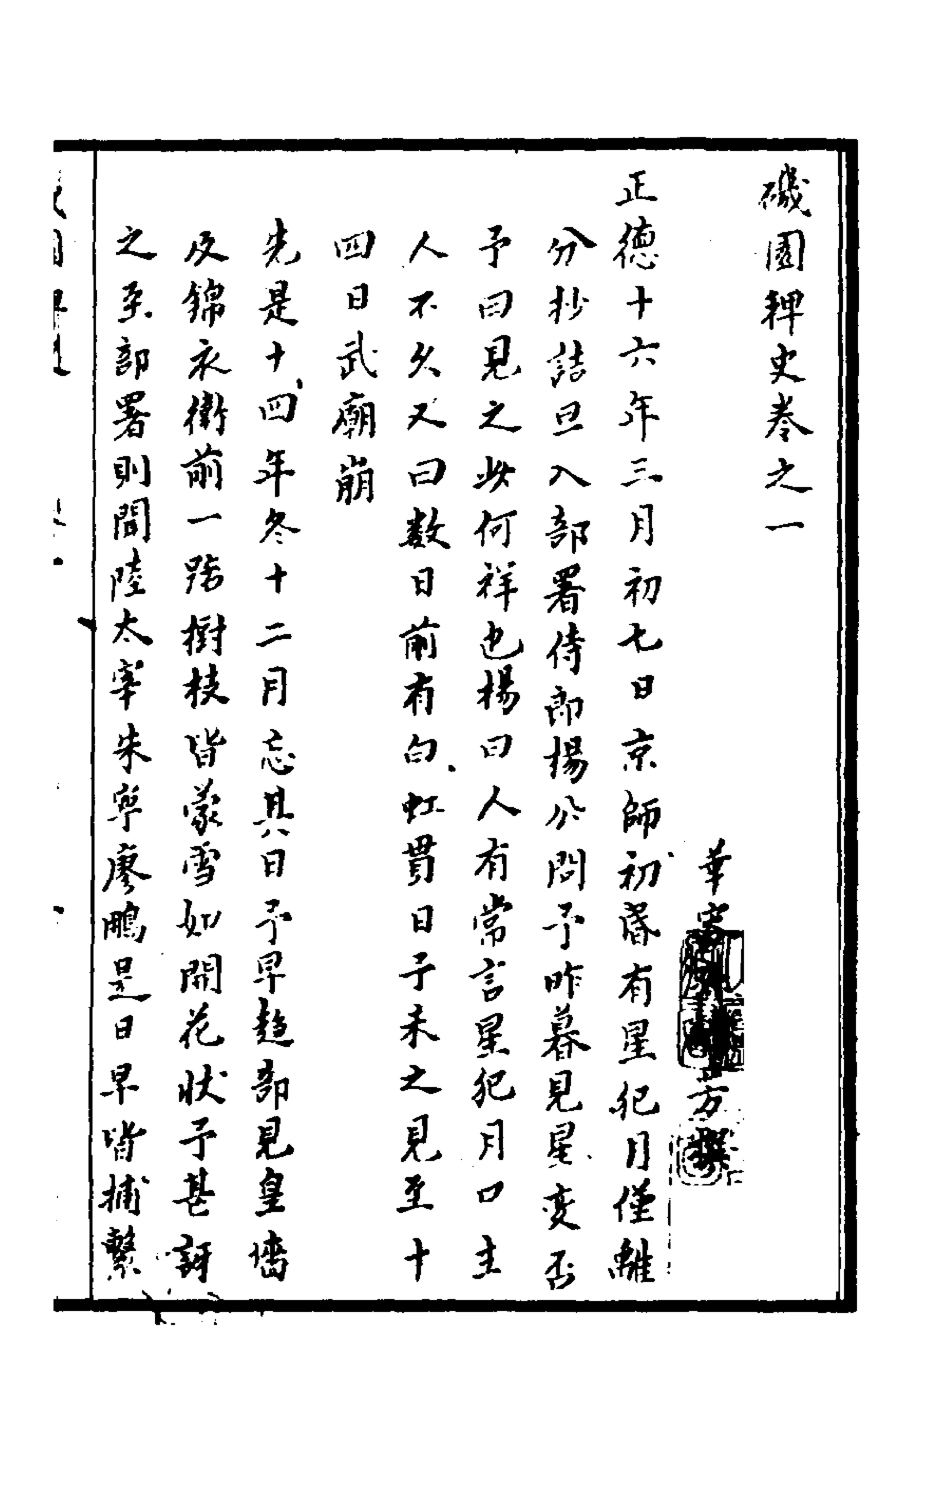 磯園稗史卷之一
華容 方撰
正德十六年三月初七日京師初昏有星犯月僅離
分抄詰旦入部署侍郎楊公問予昨暮見星変否
予曰見之此何祥也楊曰人有常言星犯月口主
人不久又曰数日前有白虹貫日予未之見至十
四日武廟崩
先是十四年冬十二月忘其日予早趋部見皇墻
及錦衣衛前一路樹枝皆蒙雪如開花狀予甚訝
之至部署則聞陸太宰朱寧廖鵬是日早皆捕繫